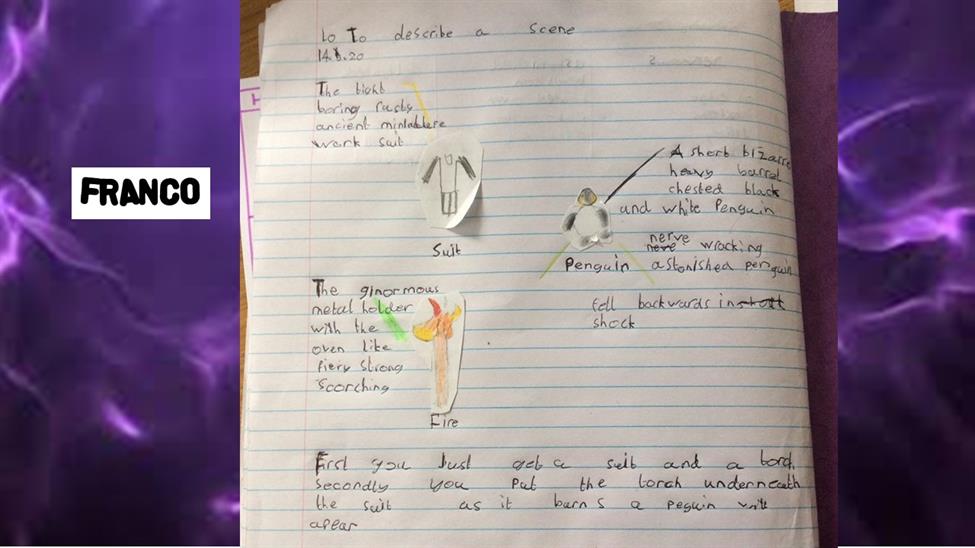 FRANCO
Lo To describe a scene
The tight
boring rusty
ancient
work suit
Suit
A short bizarre
heavy barrel
chested black
and white Penguin
nerve wracking
Penguin astonished penguin
fell backwards in
shock
The ginormous
metal holder
with the
oven like
fiery strong
scorching
Fire
First you Just get a suit and a torch
secondly you put the torch underneath
the suit as it burns a peguin will
apear